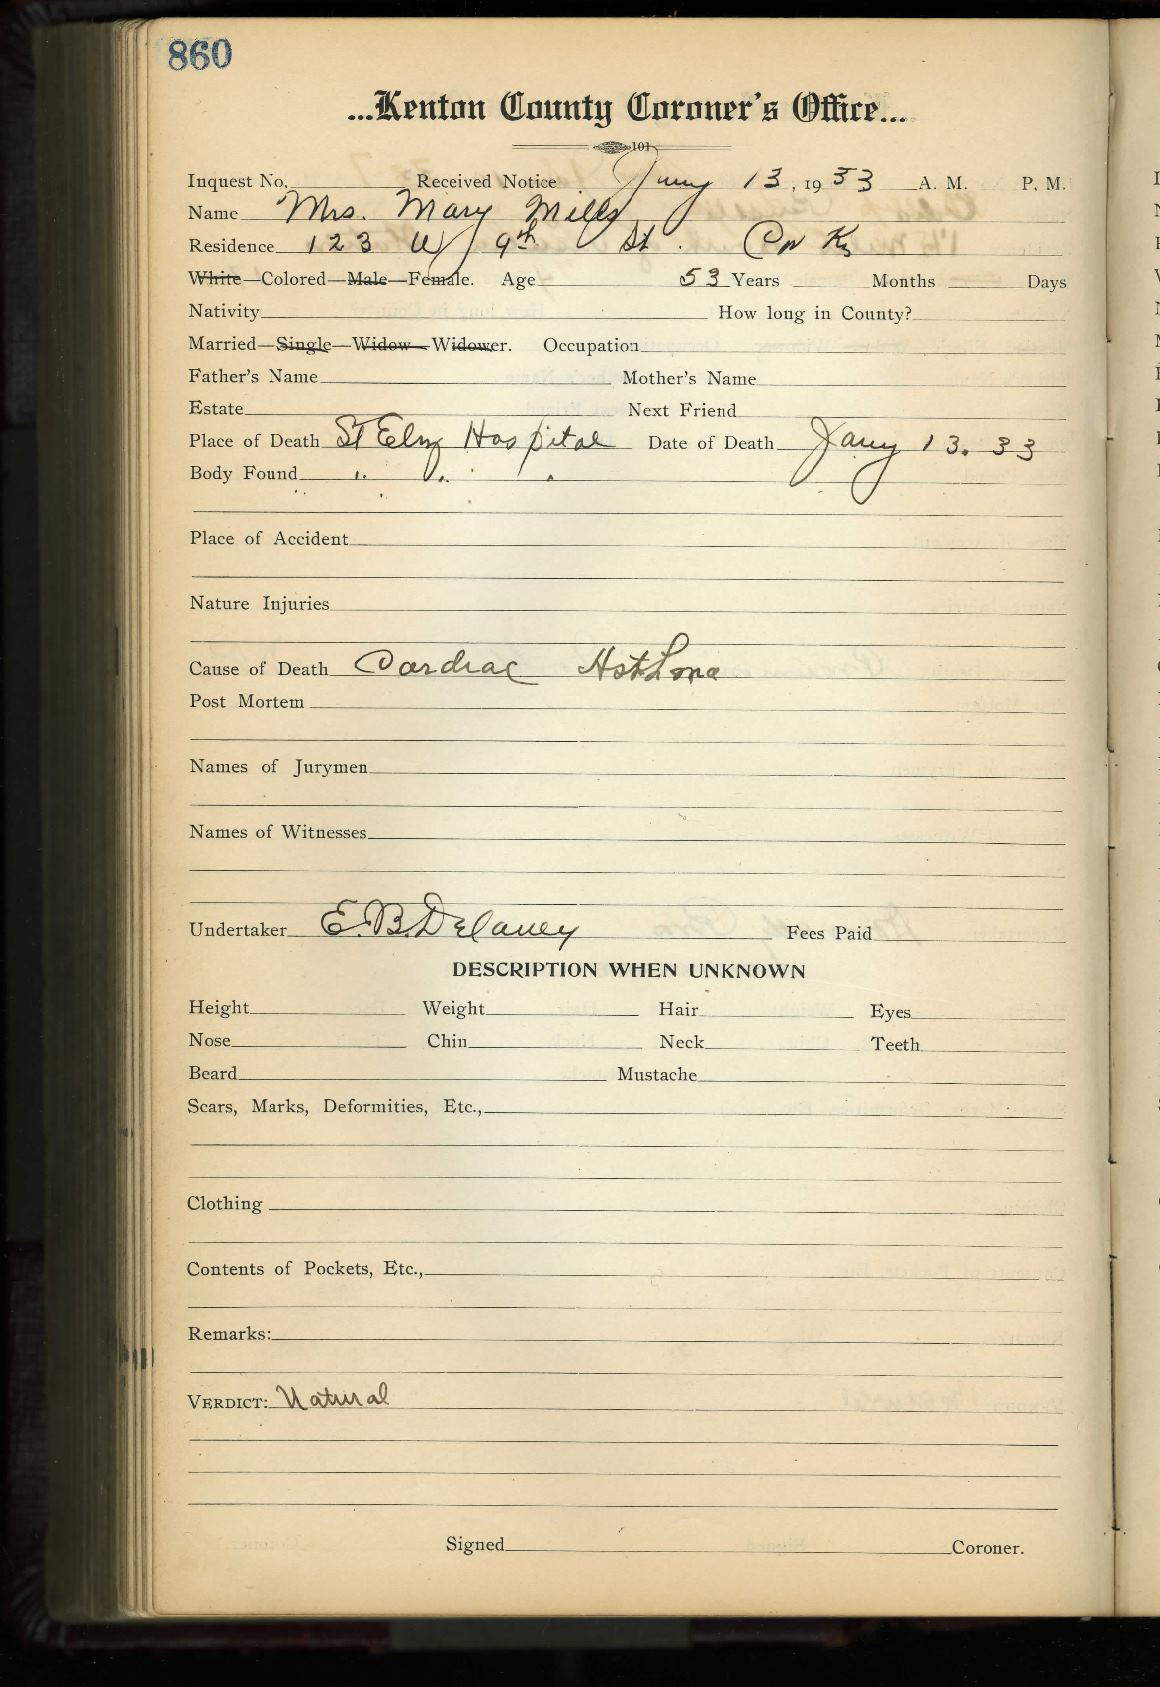 860
...Kenton County Coroner's Office...
101
Inquest No. Received Notice Jany 13, 1933 A. M. P. M.
Name Mrs. Mary Mills
Residence 123 W 9th St. Cov Ky
White—Colored—Male—Female. Age 53 Years Months Days
Nativity How long in County?
Married—Single—Widow—Widower. Occupation
Father's Name Mother's Name
Estate Next Friend
Place of Death St Eliz Hospital Date of Death Jany 13. 33
Body Found " " "
Place of Accident
Nature Injuries
Cause of Death Cardiac Asthma
Post Mortem
Names of Jurymen
Names of Witnesses
Undertaker E.B. Delaney Fees Paid
DESCRIPTION WHEN UNKNOWN
Height Weight Hair Eyes
Nose Chin Neck Teeth
Beard Mustache
Scars, Marks, Deformities, Etc.,
Clothing
Contents of Pockets, Etc.,
Remarks:
VERDICT: Natural
Signed Coroner.